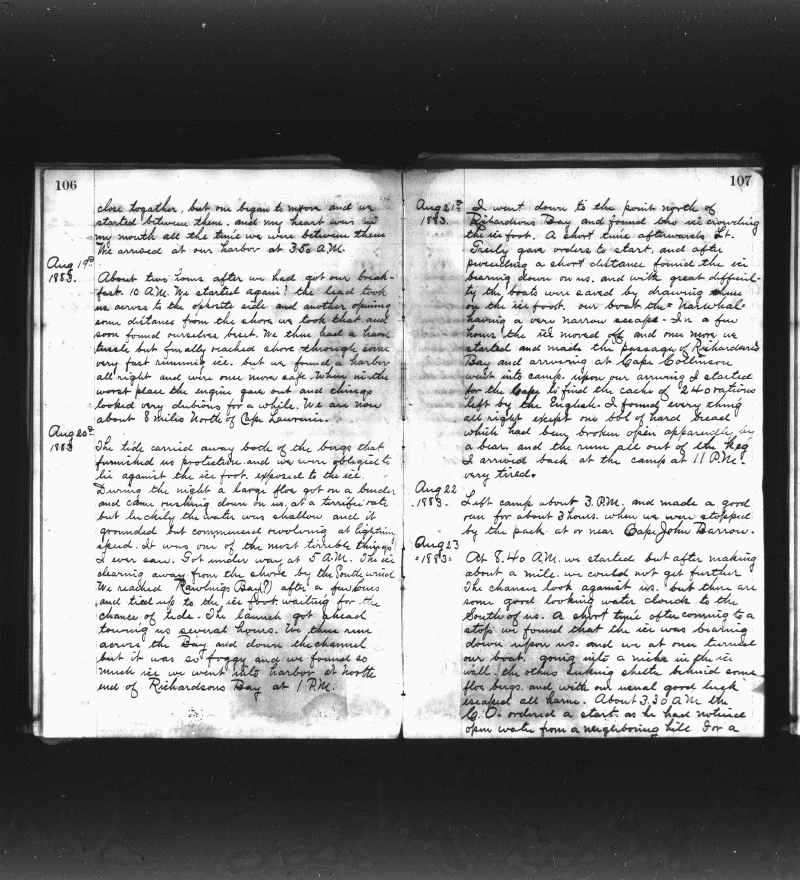 106
close together, but one began to move and we
started between them. and my heart was in
my mouth all the time we were between them
We arrived at our harbor at 3.50 A.M.
Aug 19th
1883.
About two hours after we had got our break-
fast. 10 A.M. We started again! the lead took
us across to the opposite side and another opening
some distance from the shore we took that and
soon found ourselves beset. We then had a hard
tussle but finally reached shore through some
very fast running ice. but we found a harbor
all right and were once more safe. When in the
worst place the engine gave out and things
looked very dubious for a while. We are now
about 8 miles North of Cape Lawrence.
Aug 20th
1883
The tide carried away both of the bergs that
furnished us protection and we were obliged to
lie against the ice foot. exposed to the ice.
During the night a large floe got on a bender
and came rushing down on us, at a terrific rate
but luckily the water was shallow and it
grounded but commenced revolving at lightning
speed. it was one of the most terrible things
I ever saw. Got under way at 5 A.M. The ice
clearing away from the shore by the South wind
We reached Rawlings Bay(?) after a few hours
and tied up to the ice foot waiting for the
chance of tide. The launch got ahead
towing us several hours. We then run
across the Bay and down the channel
but it was so foggy and we found so
much ice we went into harbor at North
end of Richardsons Bay at 1 P.M.
107
Aug 21st
1883.
I went down to the point north of
Richardsons Bay and found the ice crowding
the ice foot. A short time afterwards Lt.
Greely gave orders to start, and after
proceeding a short distance found the ice
bearing down on us. and with great difficul-
ty the boats were saved by drawing them
on the ice foot. our boat the "Narwhal"
having a very narrow escape. In a few
hours the ice moved off and once more we
started and made the passage of Richardsons
Bay and arriving at Cape Collinson
went into camp. upon our arriving I started
for the Cape to find the cache of 240 rations
left by the English. I found every thing
all right except one bbl of hard bread
which had been broken open apparently by
a bear. and the rum all out of the keg
I arrived back at the camp at 11 P.M.
very tired.
Aug 22
1883.
Left camp about 3. P.M. and made a good
run for about 3 hours. when we were stopped
by the pack at or near Cape John Barrow.
Aug 23
1883
At 8.40 A.M. we started but after making
about a mile. we could not get further
The chances look against us. but there are
some good looking water clouds to the
South of us. A short time after coming to a
stop we found that the ice was bearing
down upon us. and we at once turned
our boat. going into a niche in the ice
wall, the others seeking shelter behind some
floe bergs. and with our usual good luck
escaped all harm. About 3.30 A.M. the
C.O. ordered a start. as he had noticed
open water from a neighboring hill. For a